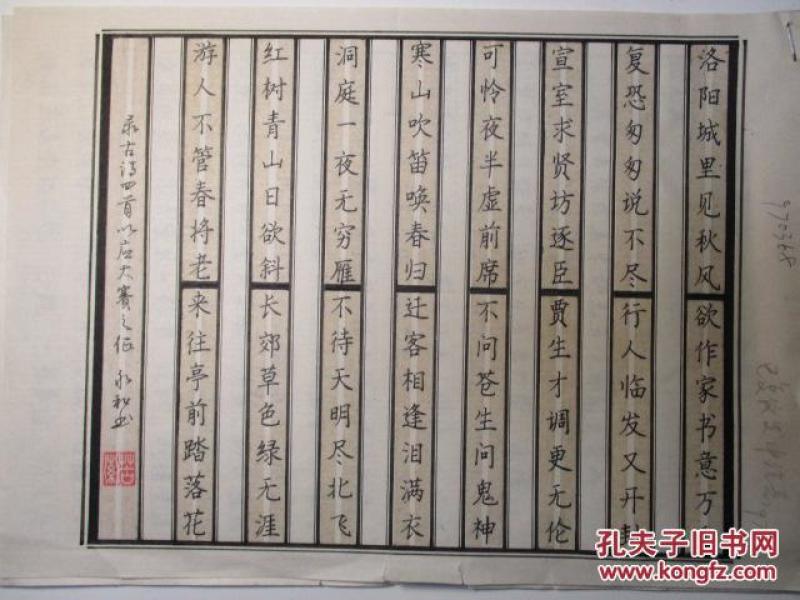 洛阳城里见秋风欲作家书意万
复恐匆匆说不尽行人临发又开封
宣室求贤坊逐臣贾生才调更无伦
可怜夜半虚前席不问苍生问鬼神
寒山吹笛唤春归迁客相逢泪满衣
洞庭一夜无穷雁不待天明尽北飞
红树青山日欲斜长郊草色绿无涯
游人不管春将老来往亭前踏落花
录古诗四首以应大赛之征 永和书
孔夫子旧书网
www.kongfz.com